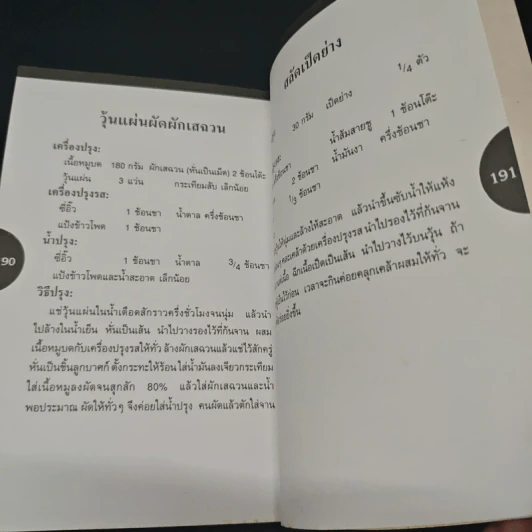 วุ้นแผ่นผัดผักเสฉวน
เครื่องปรุง:
เนื้อหมูบด 180 กรัม ผักเสฉวน (หั่นเป็นเม็ด) 2 ช้อนโต๊ะ
วุ้นแผ่น 3 แว่น กระเทียมสับ เล็กน้อย
เครื่องปรุงรส:
ซีอิ๊ว 1 ช้อนชา น้ำตาล ครึ่งช้อนชา
แป้งข้าวโพด 1 ช้อนชา
น้ำปรุง:
ซีอิ๊ว 1 ช้อนชา น้ำตาล 3/4 ช้อนชา
แป้งข้าวโพดและน้ำสะอาด เล็กน้อย
วิธีปรุง:
แช่วุ้นแผ่นในน้ำเดือดสักราวครึ่งชั่วโมงจนนุ่ม แล้วนำ
ไปล้างในน้ำเย็น หั่นเป็นเส้น นำไปวางไว้ที่ก้นจาน ผสม
เนื้อหมูบดกับเครื่องปรุงรสให้ทั่ว ล้างผักเสฉวนแล้วแช่ไว้สักครู่
หั่นเป็นชิ้นลูกบาศก์ ตั้งกระทะให้ร้อน ใส่น้ำมันลงเจียวกระเทียม
ใส่เนื้อหมูลงผัดจนสุกสัก 80% แล้วใส่ผักเสฉวนและน้ำ
พอประมาณ ผัดให้ทั่วๆ จึงค่อยใส่น้ำปรุง คนผัดแล้วตักใส่จาน
90
สลัดเป็ดย่าง
30 กรัม เป็ดย่าง 1/4 ตัว
น้ำส้มสายชู 1 ช้อนโต๊ะ
2 ช้อนชา น้ำมันงา ครึ่งช้อนชา
1/3 ช้อนชา
และล้างให้สะอาด แล้วนำขึ้นซับน้ำให้แห้ง
คลุกเคล้าด้วยเครื่องปรุงรส นำไปรองไว้ที่ก้นจาน
ฉีกเนื้อเป็ดเป็นเส้น นำไปวางไว้บนวุ้น ถ้า
เวลาจะกินค่อยคลุกเคล้าผสมให้ทั่ว จะ
ยิ่งขึ้น
191